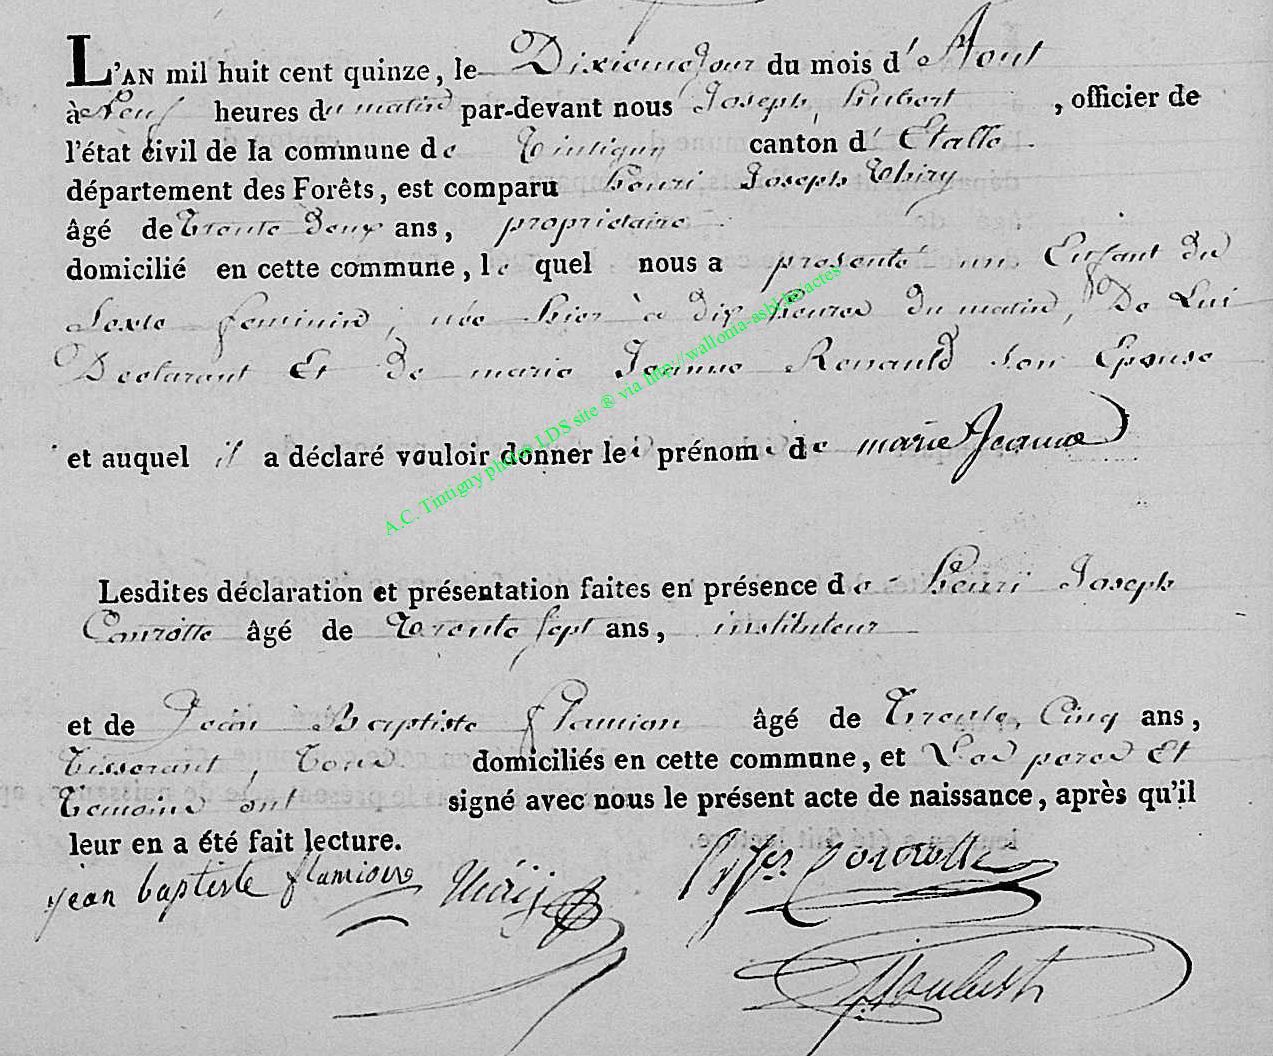 L'AN mil huit cent quinze, le Dixieme Jour du mois d' Aout
à Neuf heures du matin par-devant nous Joseph hubert, officier de
l'état civil de la commune de Tintigny canton d' Etalle
département des Forêts, est comparu henri Joseph thiry
âgé de trente deux ans, proprietaire
domicilié en cette commune, le quel nous a presenté un Enfant du
Sexte feminin, née hier à dix heures du matin, De Lui
Declarant Et de marie Jeanne Renauld Son Epouse
et auquel il a déclaré vouloir donner les prénoms de marie Jeanne
Lesdites déclaration et présentation faites en présence de henri Joseph
Conrotte âgé de trente sept ans, instituteur
et de Jean Baptiste flamion âgé de trente Cinq ans,
tisserant, tous domiciliés en cette commune, et Les peres Et
temoins ont signé avec nous le présent acte de naissance, après qu'il
leur en a été fait lecture.
jean baptiste flamion thiry Conrotte
J houbert
A.C. Tintigny photos LDS site ® via http://wallonia-asbl.be/actes